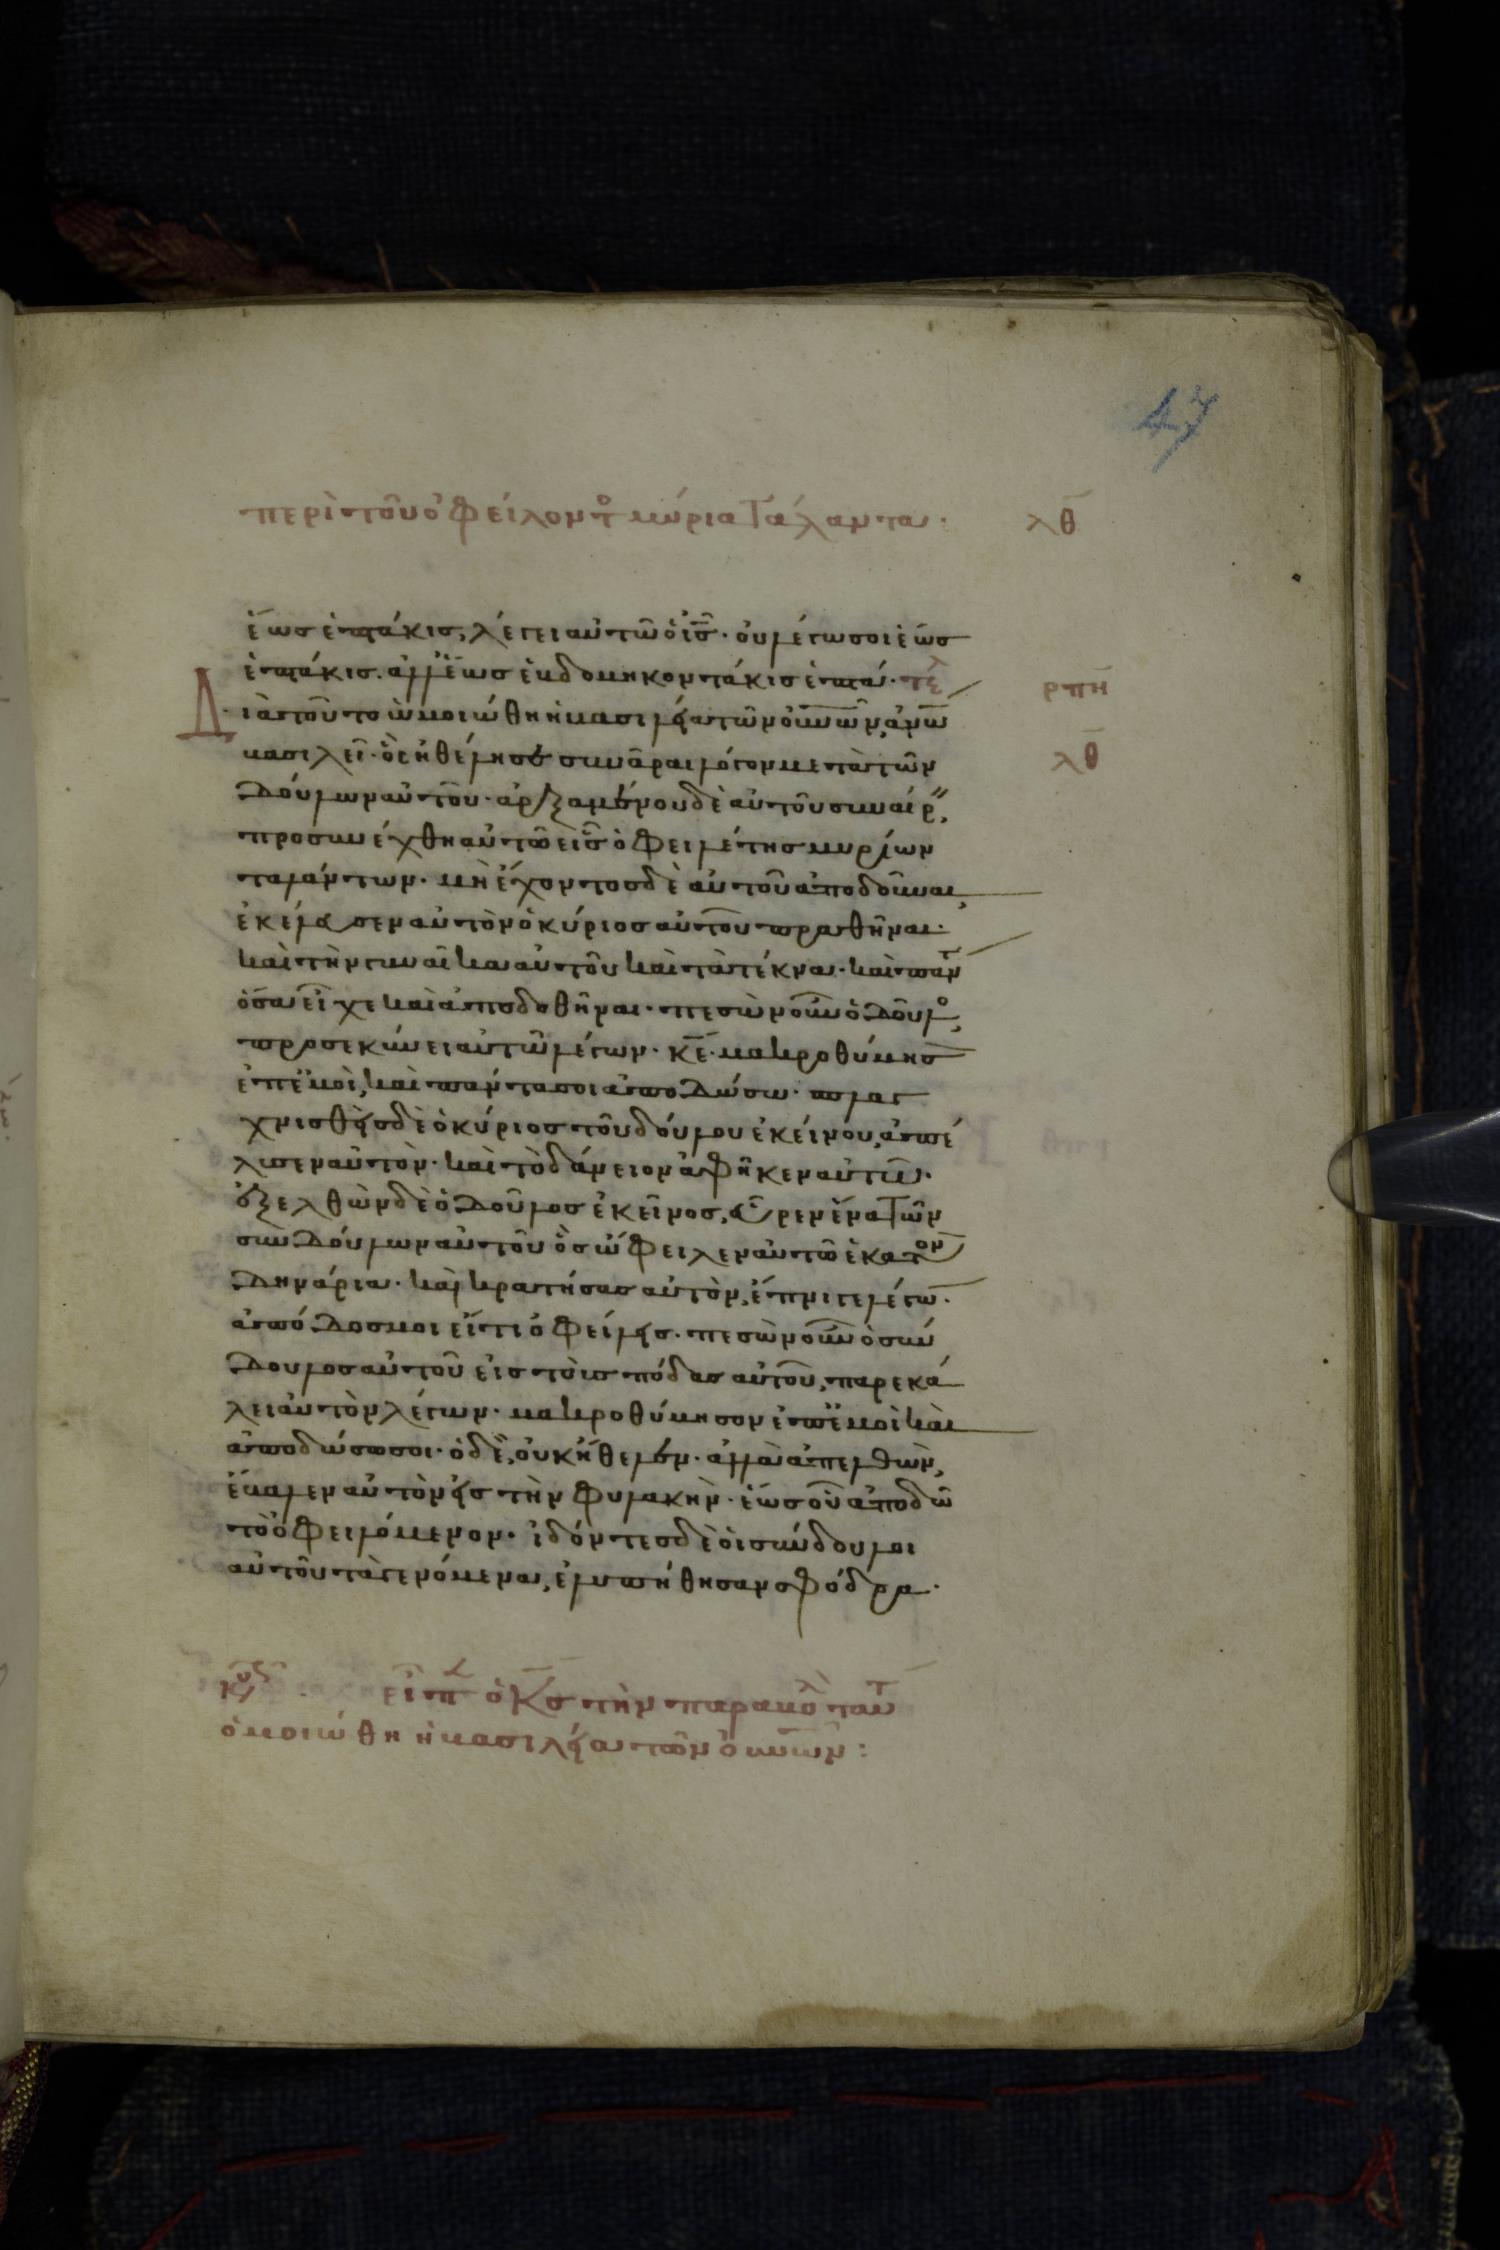 47
περὶ τοῦ ὀφείλοντ̊ μύρια τάλαντα· λθ̅
ἕως ἑπτάκις, λέγει αὐτῶ ὁ ι̅ς̅· οὐ λέγω σοι ἕως
ἑπτάκις. ἀλλ' ἕως ἑβδομηκοντάκις ἑπτά· τέλ ρπη̅
Διὰ τοῦτο ὡμοιώθη ἡ βασιλεία τῶν ο̅υ̅ν̅ω̅ν̅, ἀν̅ω̅
βασιλεῖ· ὃς ἠθέλησε συνᾶραι λόγον μετὰ τῶν λθ̅
δούλων αὐτοῦ· ἀρξαμένου δὲ αὐτοῦ συναίρ,
προσηνέχθη αὐτῶ εἷς ὀφειλέτης μυρίων
ταλάντων· μὴ ἔχοντος δὲ αὐτοῦ ἀποδοῦναι,
ἐκέλευσεν αὐτὸν ὁ κύριος αὐτοῦ πραθῆναι·
καὶ τὴν γυναῖκα αὐτοῦ καὶ τὰ τέκνα· καὶ πάντ
ὅσα εἶχε καὶ ἀποδοθῆναι· πεσὼν οὖν ὁ δοῦλ̊,
προσεκύνει αὐτῶ λέγων· κ̅ε̅· μακροθύμησ
ἐπ' ἐμοὶ, καὶ πάντα σοι ἀποδώσω· σπλαγ
χνισθεὶς δὲ ὁ κύριος τοῦ δούλου ἐκείνου, ἀπέ
λυσεν αὐτὸν· καὶ τὸ δάνειον ἀφῆκεν αὐτῶ·
ἐξελθὼν δὲ ὁ δοῦλος ἐκεῖνος, εὗρεν ἕνα τῶν
συνδούλων αὐτοῦ ὃς ὤφειλεν αὐτῶ ἑκατὸν
δηνάρια· καὶ κρατήσας αὐτὸν, ἔπνιγε λέγω̅·
ἀπόδος μοι εἴ τι ὀφείλεις· πεσὼν οὖν ὁ σύν
δουλος αὐτοῦ εἰς τοὺς πόδας αὐτοῦ, παρεκά
λει αὐτὸν λέγων· μακροθύμησον ἐπ' ἐμοὶ καὶ
ἀποδώσω σοι· ὁ δὲ, οὐκ ἤθελεν· ἀλλὰ ἀπελθὼν,
ἔβαλεν αὐτὸν εἰς τὴν φυλακὴν· ἕως οὗ ἀποδῶ
τὸ ὀφειλόμενον· ἰδόντες δὲ οἱ σύνδουλοι
αὐτοῦ τὰ γενόμενα, ἐλυπήθησαν σφόδρα·
εἶπ ὁ κ̅ς̅ τὴν παραβολ ταύτ
ὁμοιώθη ἡ βασιλεία τῶν ο̅υ̅ν̅ω̅ν̅: